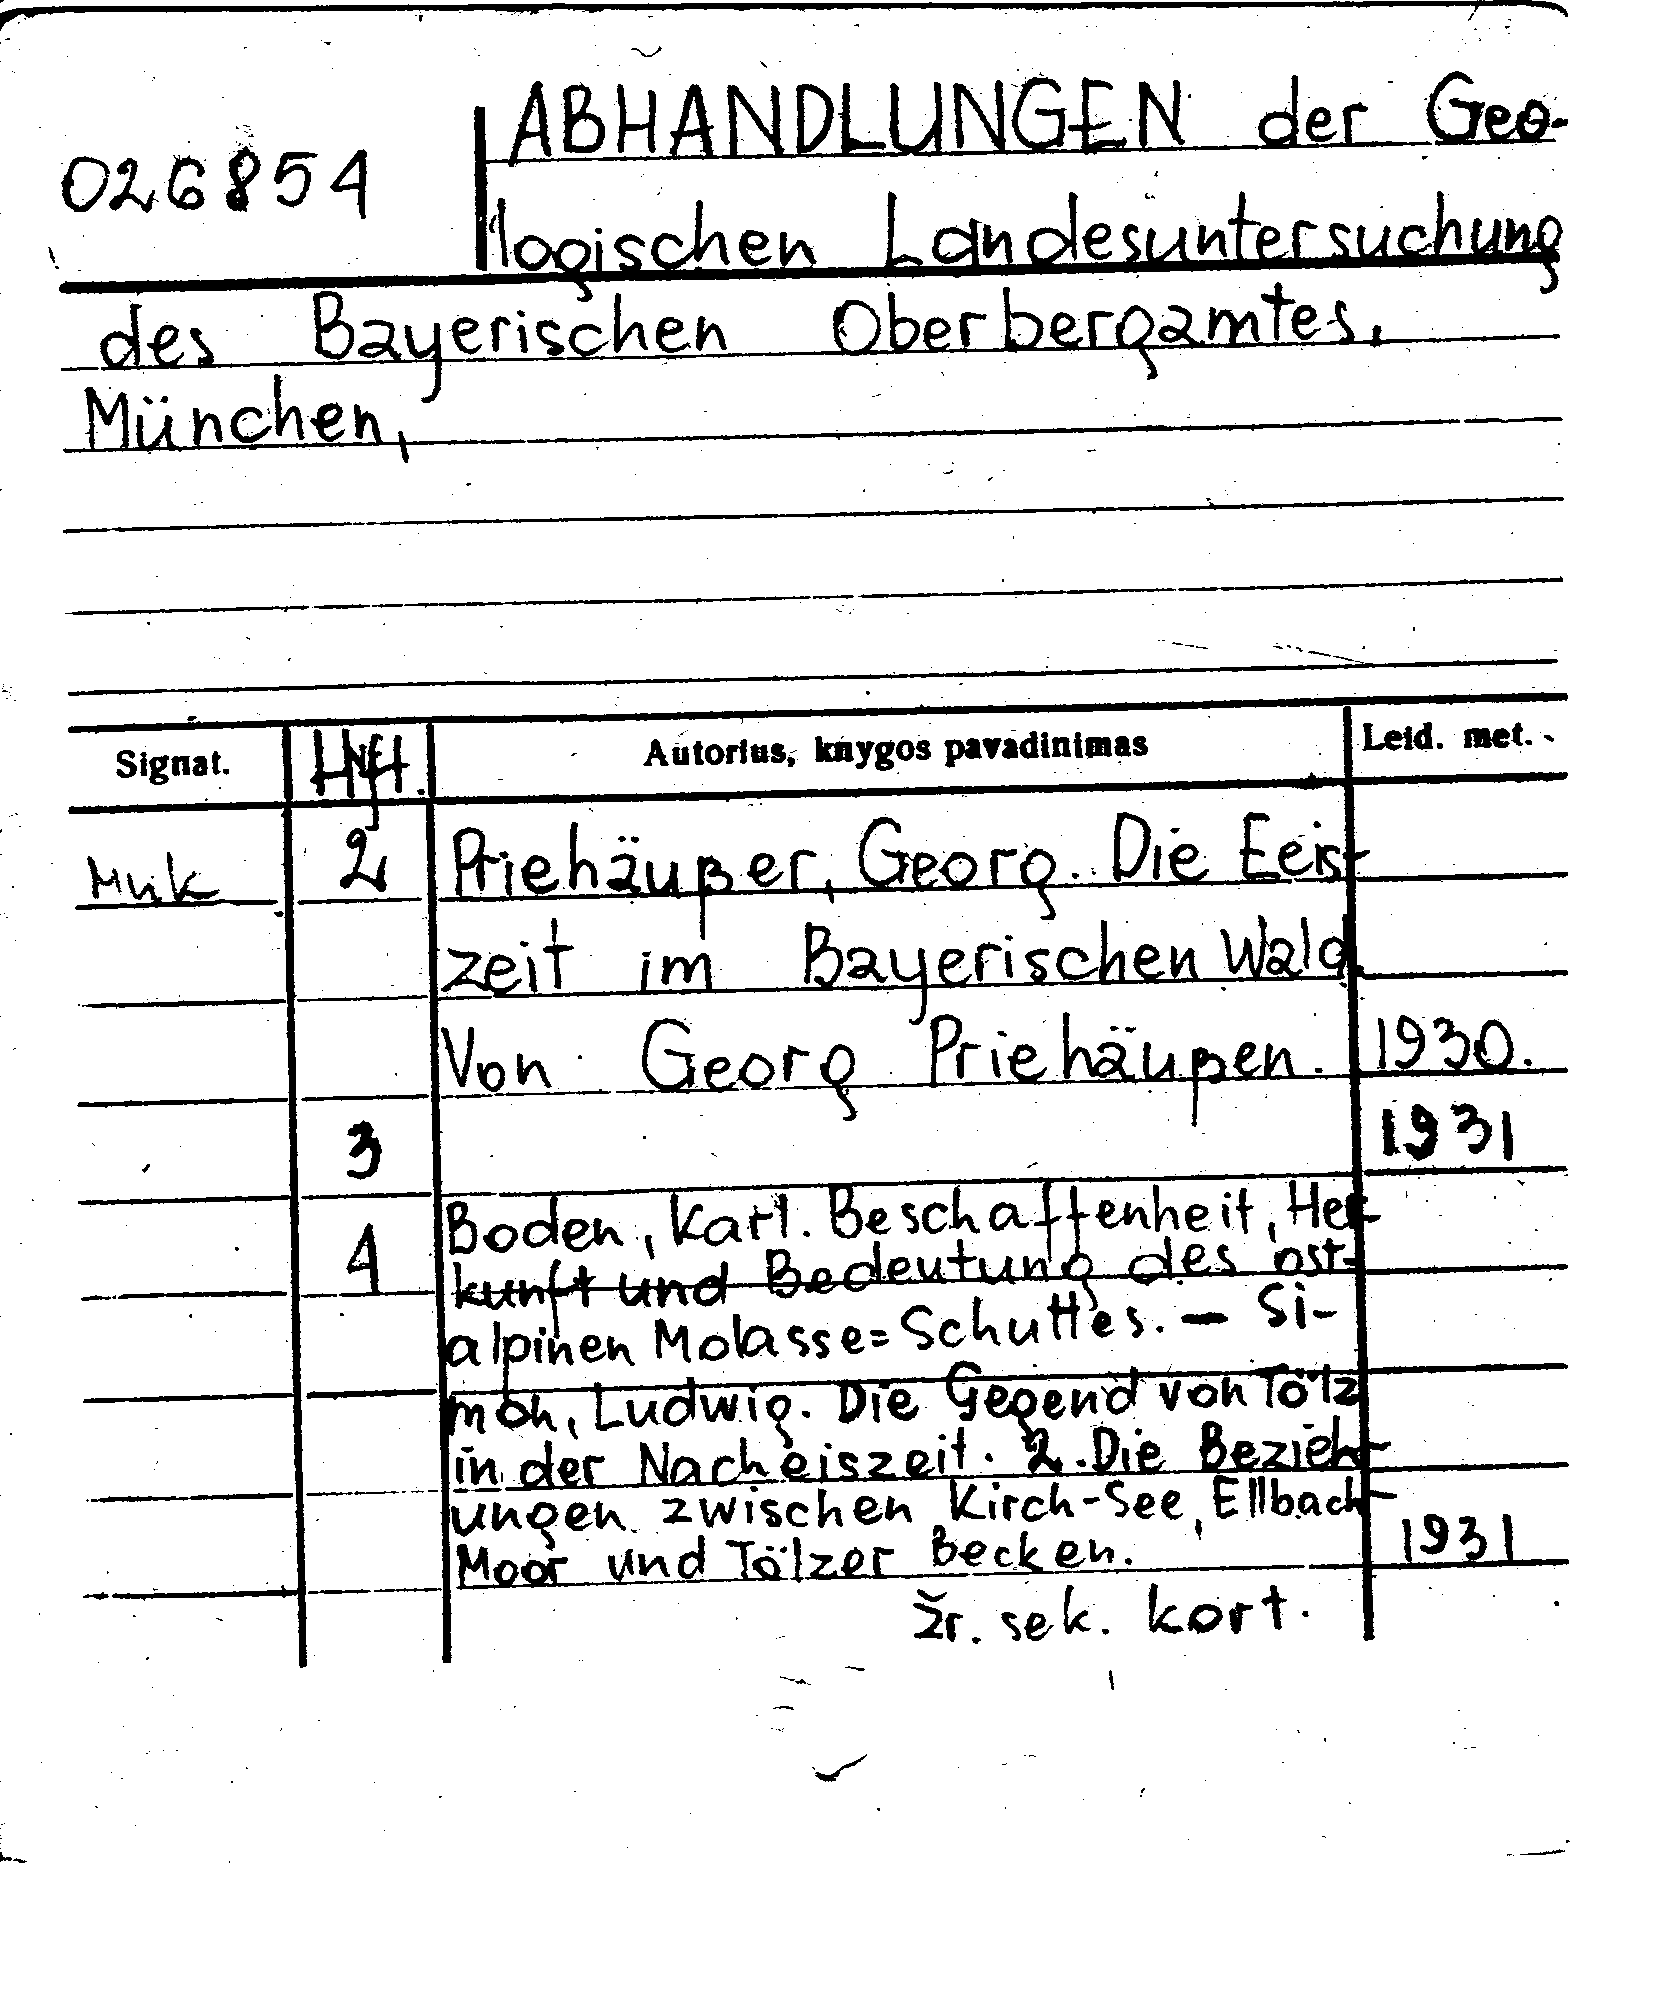 026854
ABHANDLUNGEN der Geo-
logischen Landesuntersuchung
des Bayerischen Oberbergamtes,
München,
Signat. Autorius, knygos pavadinimas Leid. met.
Muk 2 Priehäußer, Georg. Die Eeis-
zeit im Bayerischen Wald.
Von Georg Priehäußen. 1930.
3 1931
4 Boden, Karl. Beschaffenheit, Her-
kunft und Bedeutung des ost-
alpinen Molasse=Schuttes. — Si-
mon, Ludwig. Die Gegend von Tölz
in der Nacheiszeit. 2. Die Bezieh-
ungen zwischen Kirch-See, Ellbach-
Moor und Tölzer Becken. 1931
žr. sek. kort.